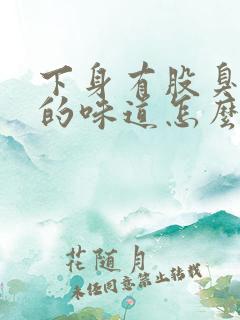 下身有股臭
的味道怎麽
花随月
未经同意禁止转载